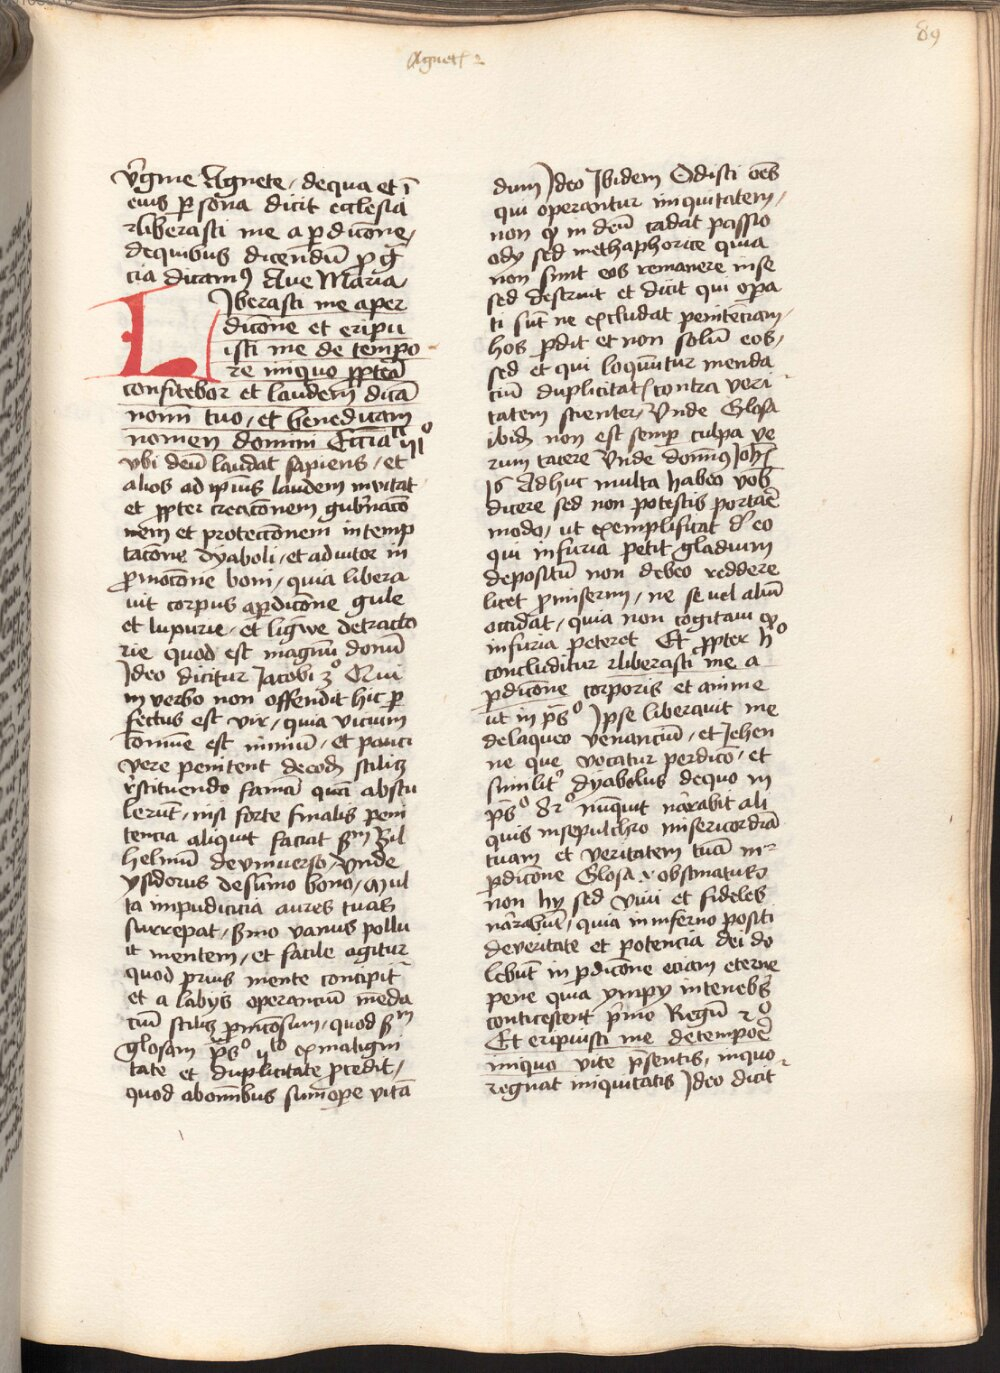 Agnet 2
89
v̄gine Agnete, de qua et ī
eius ꝑsona dicit ecclesia
liberasti me a ꝑdicōne,
de quibus dicendū ꝓ gr̄
cia dicam9 Ave Maria
Liberasti me a per
dicōne et eripu
isti me de tempo
re iniquo ꝓpterea
confitebor et laudem dicā
nomī tuo, et benedicam
nomen domini
vbi deū laudat sapiens, et
alios ad ipius laudem invitat
et ꝓpter creacōnem gub̄nacō
nem et protectōnem in temp
tacōne dyaboli, et adiutor in
ꝓmocōne boni, quia libera
uit corpus a ꝑdicōne gule
et luxurie, et ligwe detracto
rie quod est magnū donū
Ideo dicitur Jacobi 3º Qui
in verbo non offendit hic ꝑ
fectus est vir, quia vicium
comūe est nimiū, et pauci
vere penitent de eodē scilicꝫ
restituendo famā quā abstu
lerūt, nisi forte finalis peni
tencia aliquit faciat ẜm Wil
helmū de vniuerso, Vnde
ysiderus de sūmo bono, Mul
ta impudicicia aures tuas
surrepat, ẜmo vanus pollu
it mentem, et facile agitur
quod prius mente concipit
et a labijs operanciū menda
ciū scilicꝫ ꝑniciosum, quod ẜm
glosam ps̄º ex maligni
tate et duplicitate ꝓcedit,
quod ab omībus sum̄ope vitā
dum Ideo Ibidem Odisti om̄s
qui operantur iniquitatem,
non ꝙ in deū cadat passio
odij sed methaphorice quia
non sinit eos remanere in se
sed destruit et dicit qui oꝑa
ti sūt ne excludat penitēciam,
hos ꝑdit et non solū eos,
sed et qui loquūtur menda
ciū duplicitat contra veri
tatem scienter, Vnde Glosa
ibidē non est semꝑ culpa ve
rum tacere Vnde domin9 Joh̄
16 Adhuc multa habeo vob̄
dicere sed non potestis portare
modo, ut exemplificat de eo
qui in furia petit gladium
depositū non debeo reddere
licet ꝓmiserim, ne se uel aliū
occidat, quia non cogitaui ꝙ
in furia peteret Et ꝓpter hº
concluditur liberasti me a
ꝑdicōne corporis et anime
ut in ps̄º Ipse liberauit me
de laqueo venanciū, et Jehen
ne que vocatur perdicō, et
similitº dyabolus de quo in
ps̄º 87º nūquit narrabit ali
quis in sepulchro misericordiā
tuam et veritatem tuā in
ꝑdicōne Glosa obstinatus
non hij sed viui et fideles
narrabūt, quia in inferno positi
de veritate et potencia dei do
lebūt in ꝑdicōne eciam eterne
pene quia ympij in teneb̄s
conticescent ṗmo Regū 2º
Et eripuisti me de tempore
iniquo vite p̄sentis, in quo
regnat iniquitatis Ideo dicit